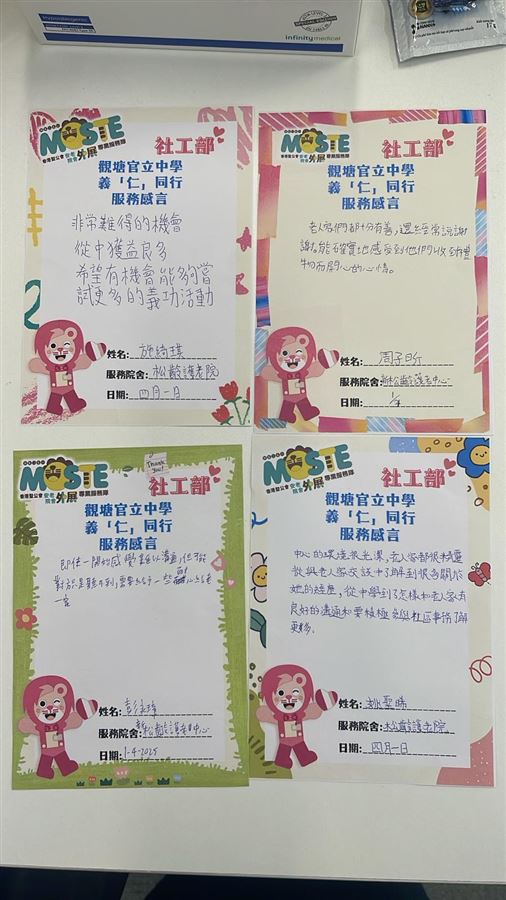 infinitymedical
MOSTE
香港聖公會安老院舍外展專業服務隊
社工部
觀塘官立中學
義「仁」同行
服務感言
非常難得的機會
從中獲益良多
希望有機會能夠嘗
試更多的義功活動
姓名: 施綺琪
服務院舍: 松齡護老院
日期: 四月一日
MOSTE
香港聖公會安老院舍外展專業服務隊
社工部
觀塘官立中學
義「仁」同行
服務感言
老人家們都十分有善,還經常說謝
謝,能確實地感受到他們收到禮
物而開心的心情。
姓名: 周子昕
服務院舍: 松齡護老中心
日期: 1/4
MOSTE
香港聖公會安老院舍外展專業服務隊
Thank You!
社工部
觀塘官立中學
義「仁」同行
服務感言
即使一開始感覺難以溝通,但可能
對方只是聽不到,需要給予一些耐心
姓名: 彭
服務院舍: 松齡護老中心
日期: 1-4-2025
MOSTE
香港聖公會安老院舍外展專業服務隊
社工部
觀塘官立中學
義「仁」同行
服務感言
中心的環境很光潔,老人家都很精靈
從與老人家交談中了解到很多關於
她的經歷,從中學到了怎樣和老人家有
良好的溝通和要積極參與社區事務了解
更多。
姓名:
服務院舍: 松齡護老院
日期: 四月一日